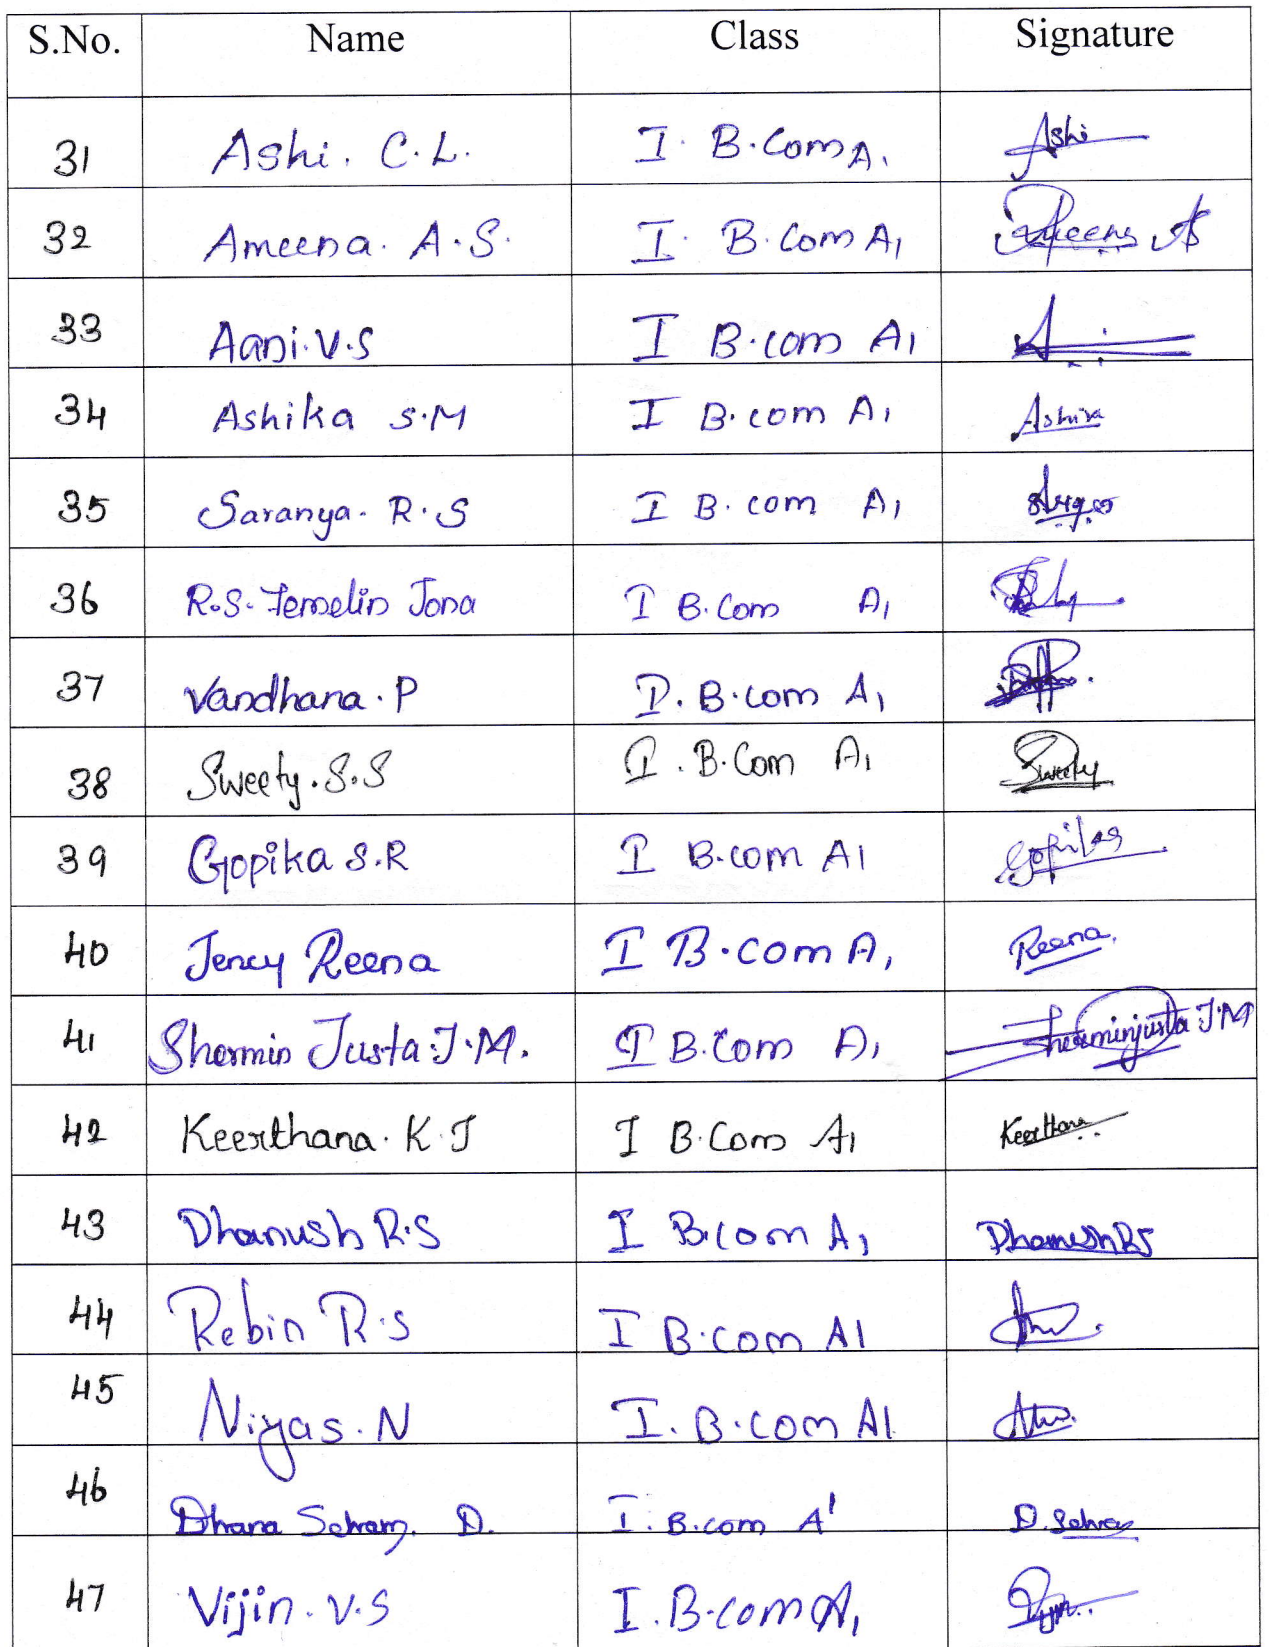 S.No. Name Class Signature
31 Ashi. C.L. I. B.Com A1 Ashi
32 Ameena. A.S. I. B.Com A1
33 Aani.V.S I B.com A1
34 Ashika S.M I B.com A1 Ashika
35 Saranya. R.S I B.com A1
36 R.S. Jemelin Jona I B.Com A1
37 Vandhana.P I. B.com A1
38 Sweety.S.S I. B.Com A1 Sweety
39 Gopika S.R I B.com A1 Gopika
40 Jency Reena I B.com A1 Reena.
41 Shermin Justa.J.M. I B.Com A1 Sherminjusta J.M
42 Keerthana. K J I B.Com A1 Keerthana
43 Dhanush R.S I B.com A1 Dhanush RS
44 Rebin R.S I B.com A1
45 Niyas.N I. B.com A1
46 Dhana D. I. B.com A1 D.
47 Vijin. V.S I. B.com A1